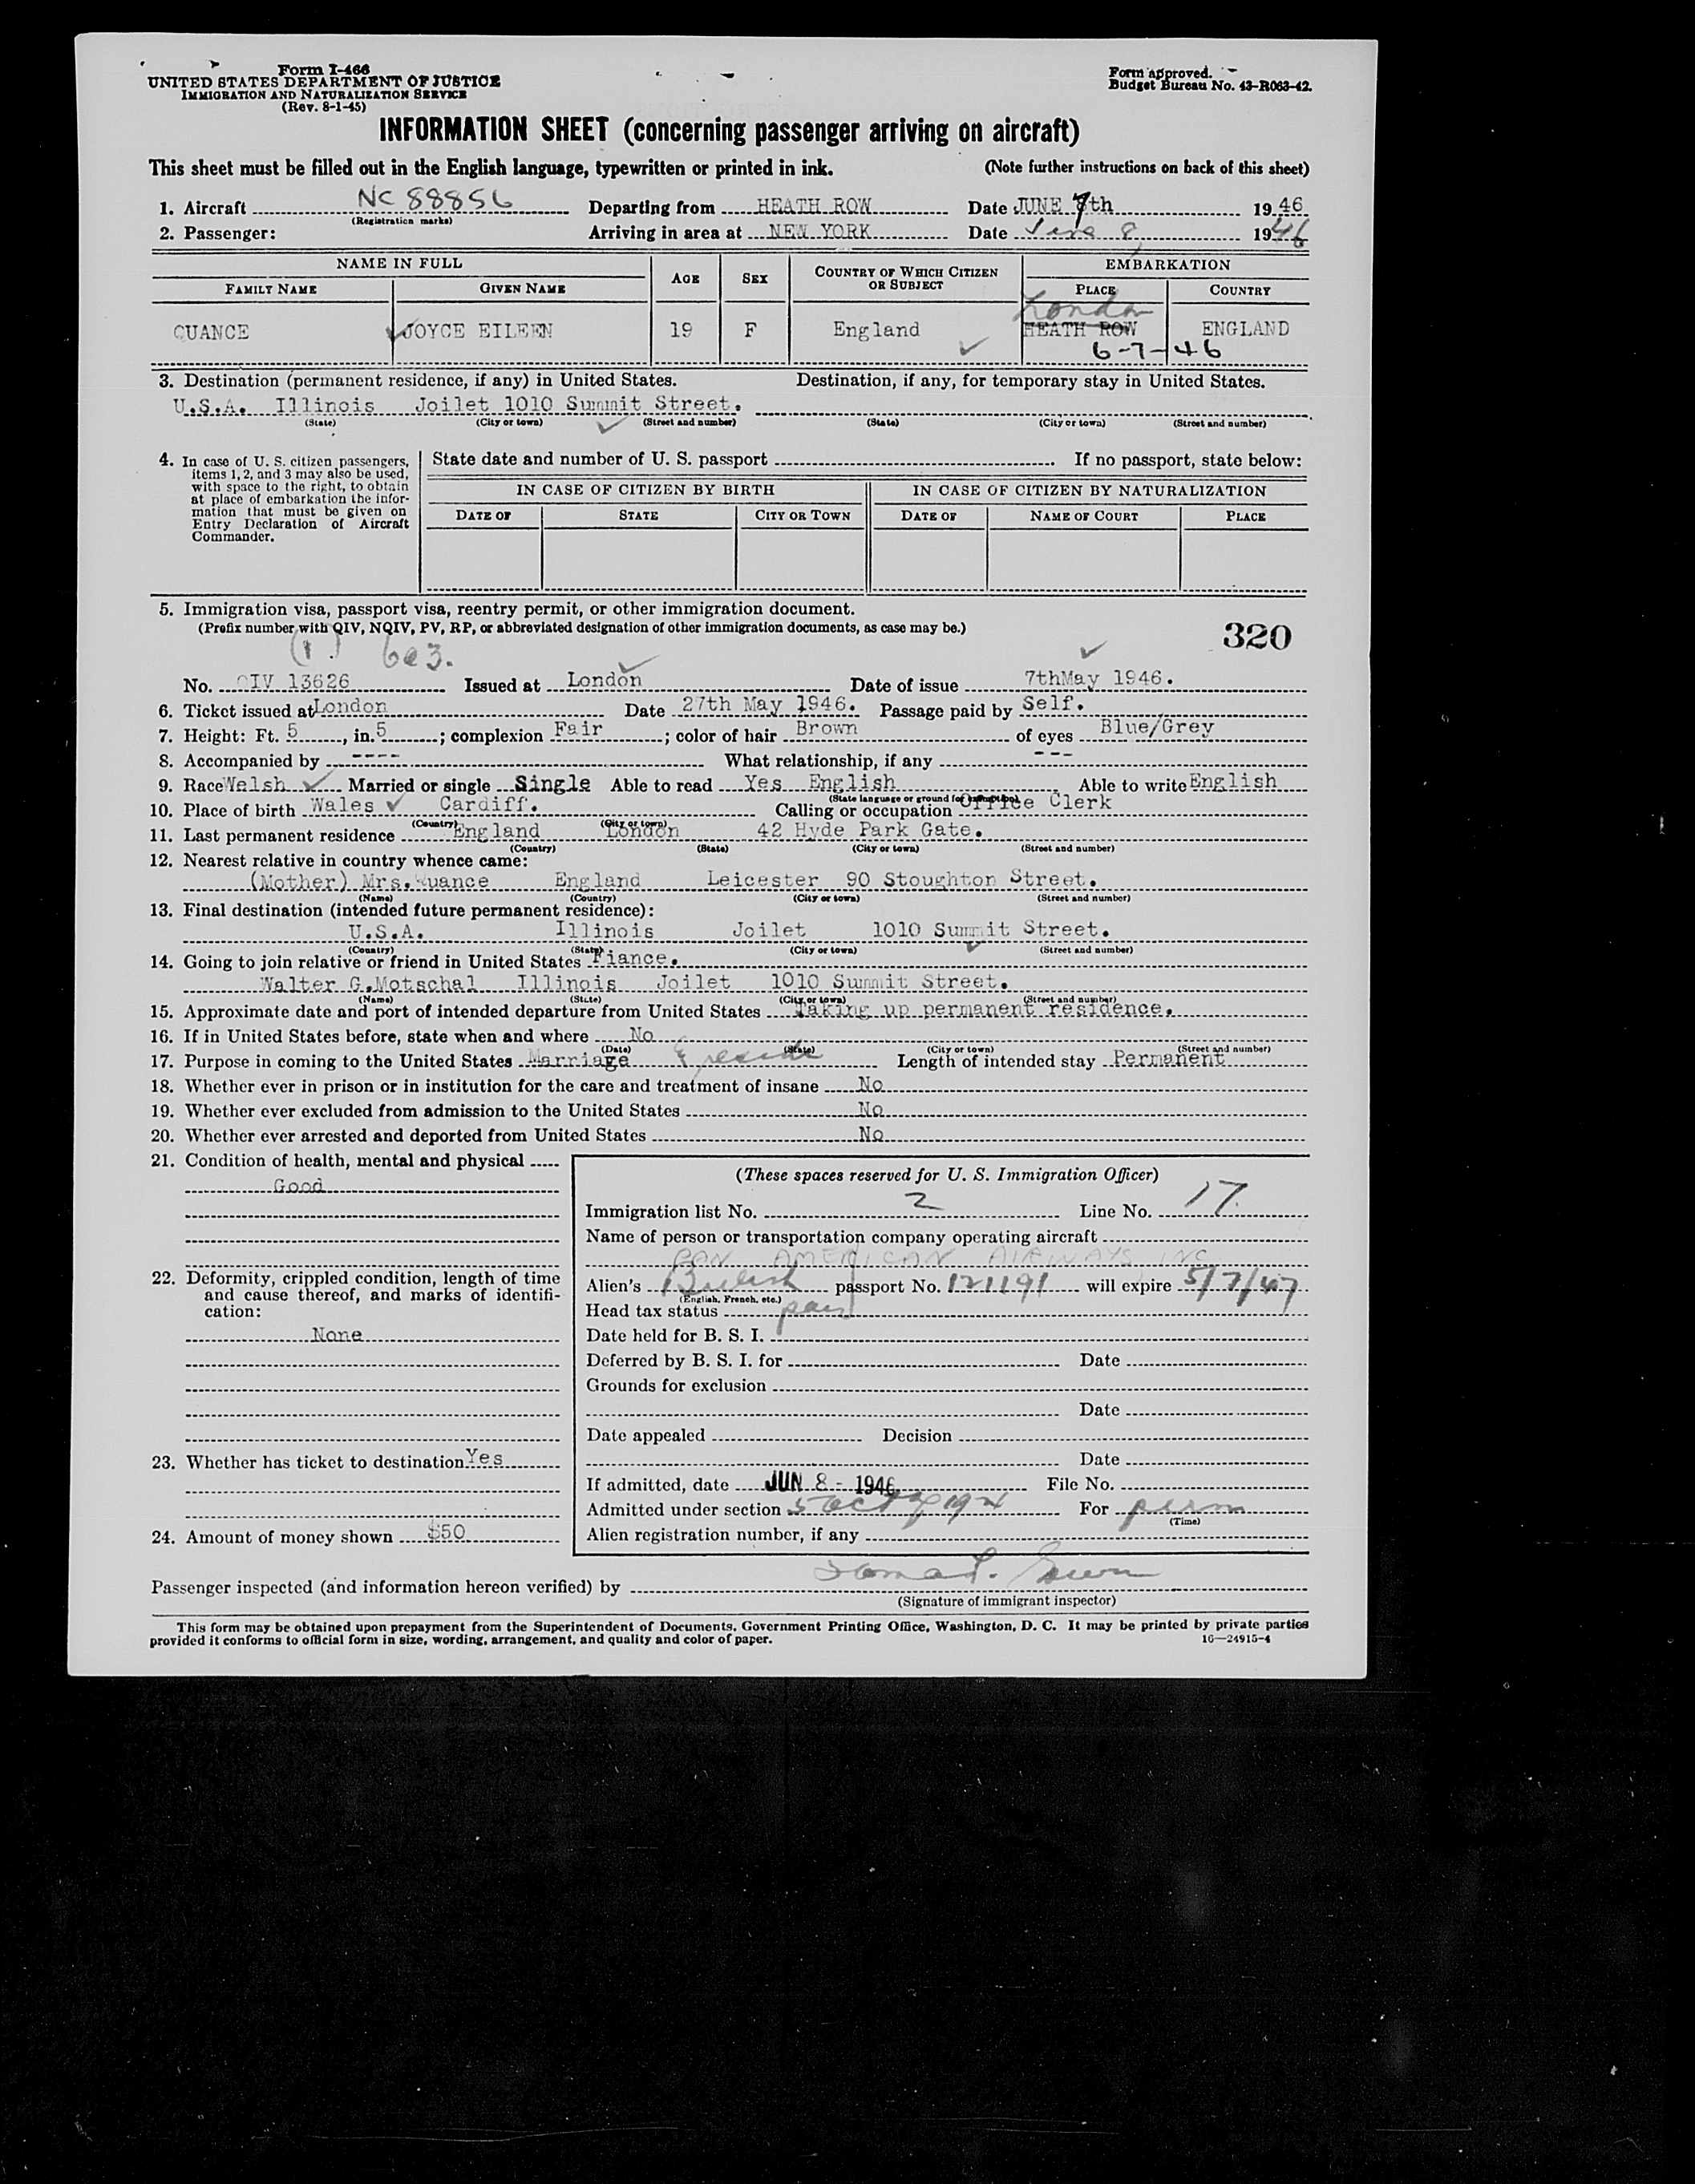 Form I-466
UNITED STATES DEPARTMENT OF JUSTICE
IMMIGRATION AND NATURALIZATION SERVICE
(Rev. 8-1-45)
Form approved.
Budget Bureau No. 43-R063-42.
INFORMATION SHEET (concerning passenger arriving on aircraft)
This sheet must be filled out in the English language, typewritten or printed in ink. (Note further instructions on back of this sheet)
1. Aircraft NC 88856 Departing from HEATH ROW Date JUNE 7th 1946
(Registration marks)
2. Passenger: Arriving in area at NEW YORK Date June 8, 1946
NAME IN FULL AGE SEX COUNTRY OF WHICH CITIZEN OR SUBJECT EMBARKATION
FAMILY NAME GIVEN NAME PLACE COUNTRY
London
QUANCE JOYCE EILEEN 19 F England HEATH ROW ENGLAND
6-7-46
3. Destination (permanent residence, if any) in United States. Destination, if any, for temporary stay in United States.
U.S.A. Illinois Joilet 1010 Summit Street.
(State) (City or town) (Street and number) (State) (City or town) (Street and number)
4. In case of U. S. citizen passengers, items 1, 2, and 3 may also be used, with space to the right, to obtain at place of embarkation the information that must be given on Entry Declaration of Aircraft Commander.
State date and number of U. S. passport If no passport, state below:
IN CASE OF CITIZEN BY BIRTH IN CASE OF CITIZEN BY NATURALIZATION
DATE OF STATE CITY OR TOWN DATE OF NAME OF COURT PLACE
5. Immigration visa, passport visa, reentry permit, or other immigration document.
(Prefix number with QIV, NQIV, PV, RP, or abbreviated designation of other immigration documents, as case may be.)
320
No. QIV 13626 Issued at London Date of issue 7thMay 1946.
6. Ticket issued at London Date 27th May 1946. Passage paid by Self.
7. Height: Ft. 5, in. 5; complexion Fair; color of hair Brown of eyes Blue/Grey
8. Accompanied by ---- What relationship, if any ---
9. Race Welsh Married or single Single Able to read Yes English Able to write English
(State language or ground for exemption)
10. Place of birth Wales Cardiff. Calling or occupation Office Clerk
(Country) (City or town)
11. Last permanent residence England London 42 Hyde Park Gate.
(Country) (State) (City or town) (Street and number)
12. Nearest relative in country whence came:
(Mother) Mrs.Quance England Leicester 90 Stoughton Street.
(Name) (Country) (City or town) (Street and number)
13. Final destination (intended future permanent residence):
U.S.A. Illinois Joilet 1010 Summit Street.
(Country) (State) (City or town) (Street and number)
14. Going to join relative or friend in United States Fiance.
Walter G.Motschal Illinois Joilet 1010 Summit Street.
(Name) (State) (City or town) (Street and number)
15. Approximate date and port of intended departure from United States Taking up permanent residence.
16. If in United States before, state when and where No
(Date) (State) (City or town) (Street and number)
17. Purpose in coming to the United States Marriage & reside Length of intended stay Permanent
18. Whether ever in prison or in institution for the care and treatment of insane No
19. Whether ever excluded from admission to the United States No
20. Whether ever arrested and deported from United States No
21. Condition of health, mental and physical
Good
22. Deformity, crippled condition, length of time and cause thereof, and marks of identification:
None
23. Whether has ticket to destination Yes
24. Amount of money shown $50
(These spaces reserved for U. S. Immigration Officer)
Immigration list No. 2 Line No. 17
Name of person or transportation company operating aircraft
PAN AMERICAN AIRWAYS INC
Alien's British passport No. 121191 will expire 5/7/47
(English, French, etc.)
Head tax status paid
Date held for B. S. I.
Deferred by B. S. I. for Date
Grounds for exclusion
Date
Date appealed Decision
Date
If admitted, date JUN 8 - 1946 File No.
Admitted under section 5 act of 1924 For perm
(Time)
Alien registration number, if any
Passenger inspected (and information hereon verified) by
(Signature of immigrant inspector)
This form may be obtained upon prepayment from the Superintendent of Documents, Government Printing Office, Washington, D. C. It may be printed by private parties
provided it conforms to official form in size, wording, arrangement, and quality and color of paper. 16—24915-4